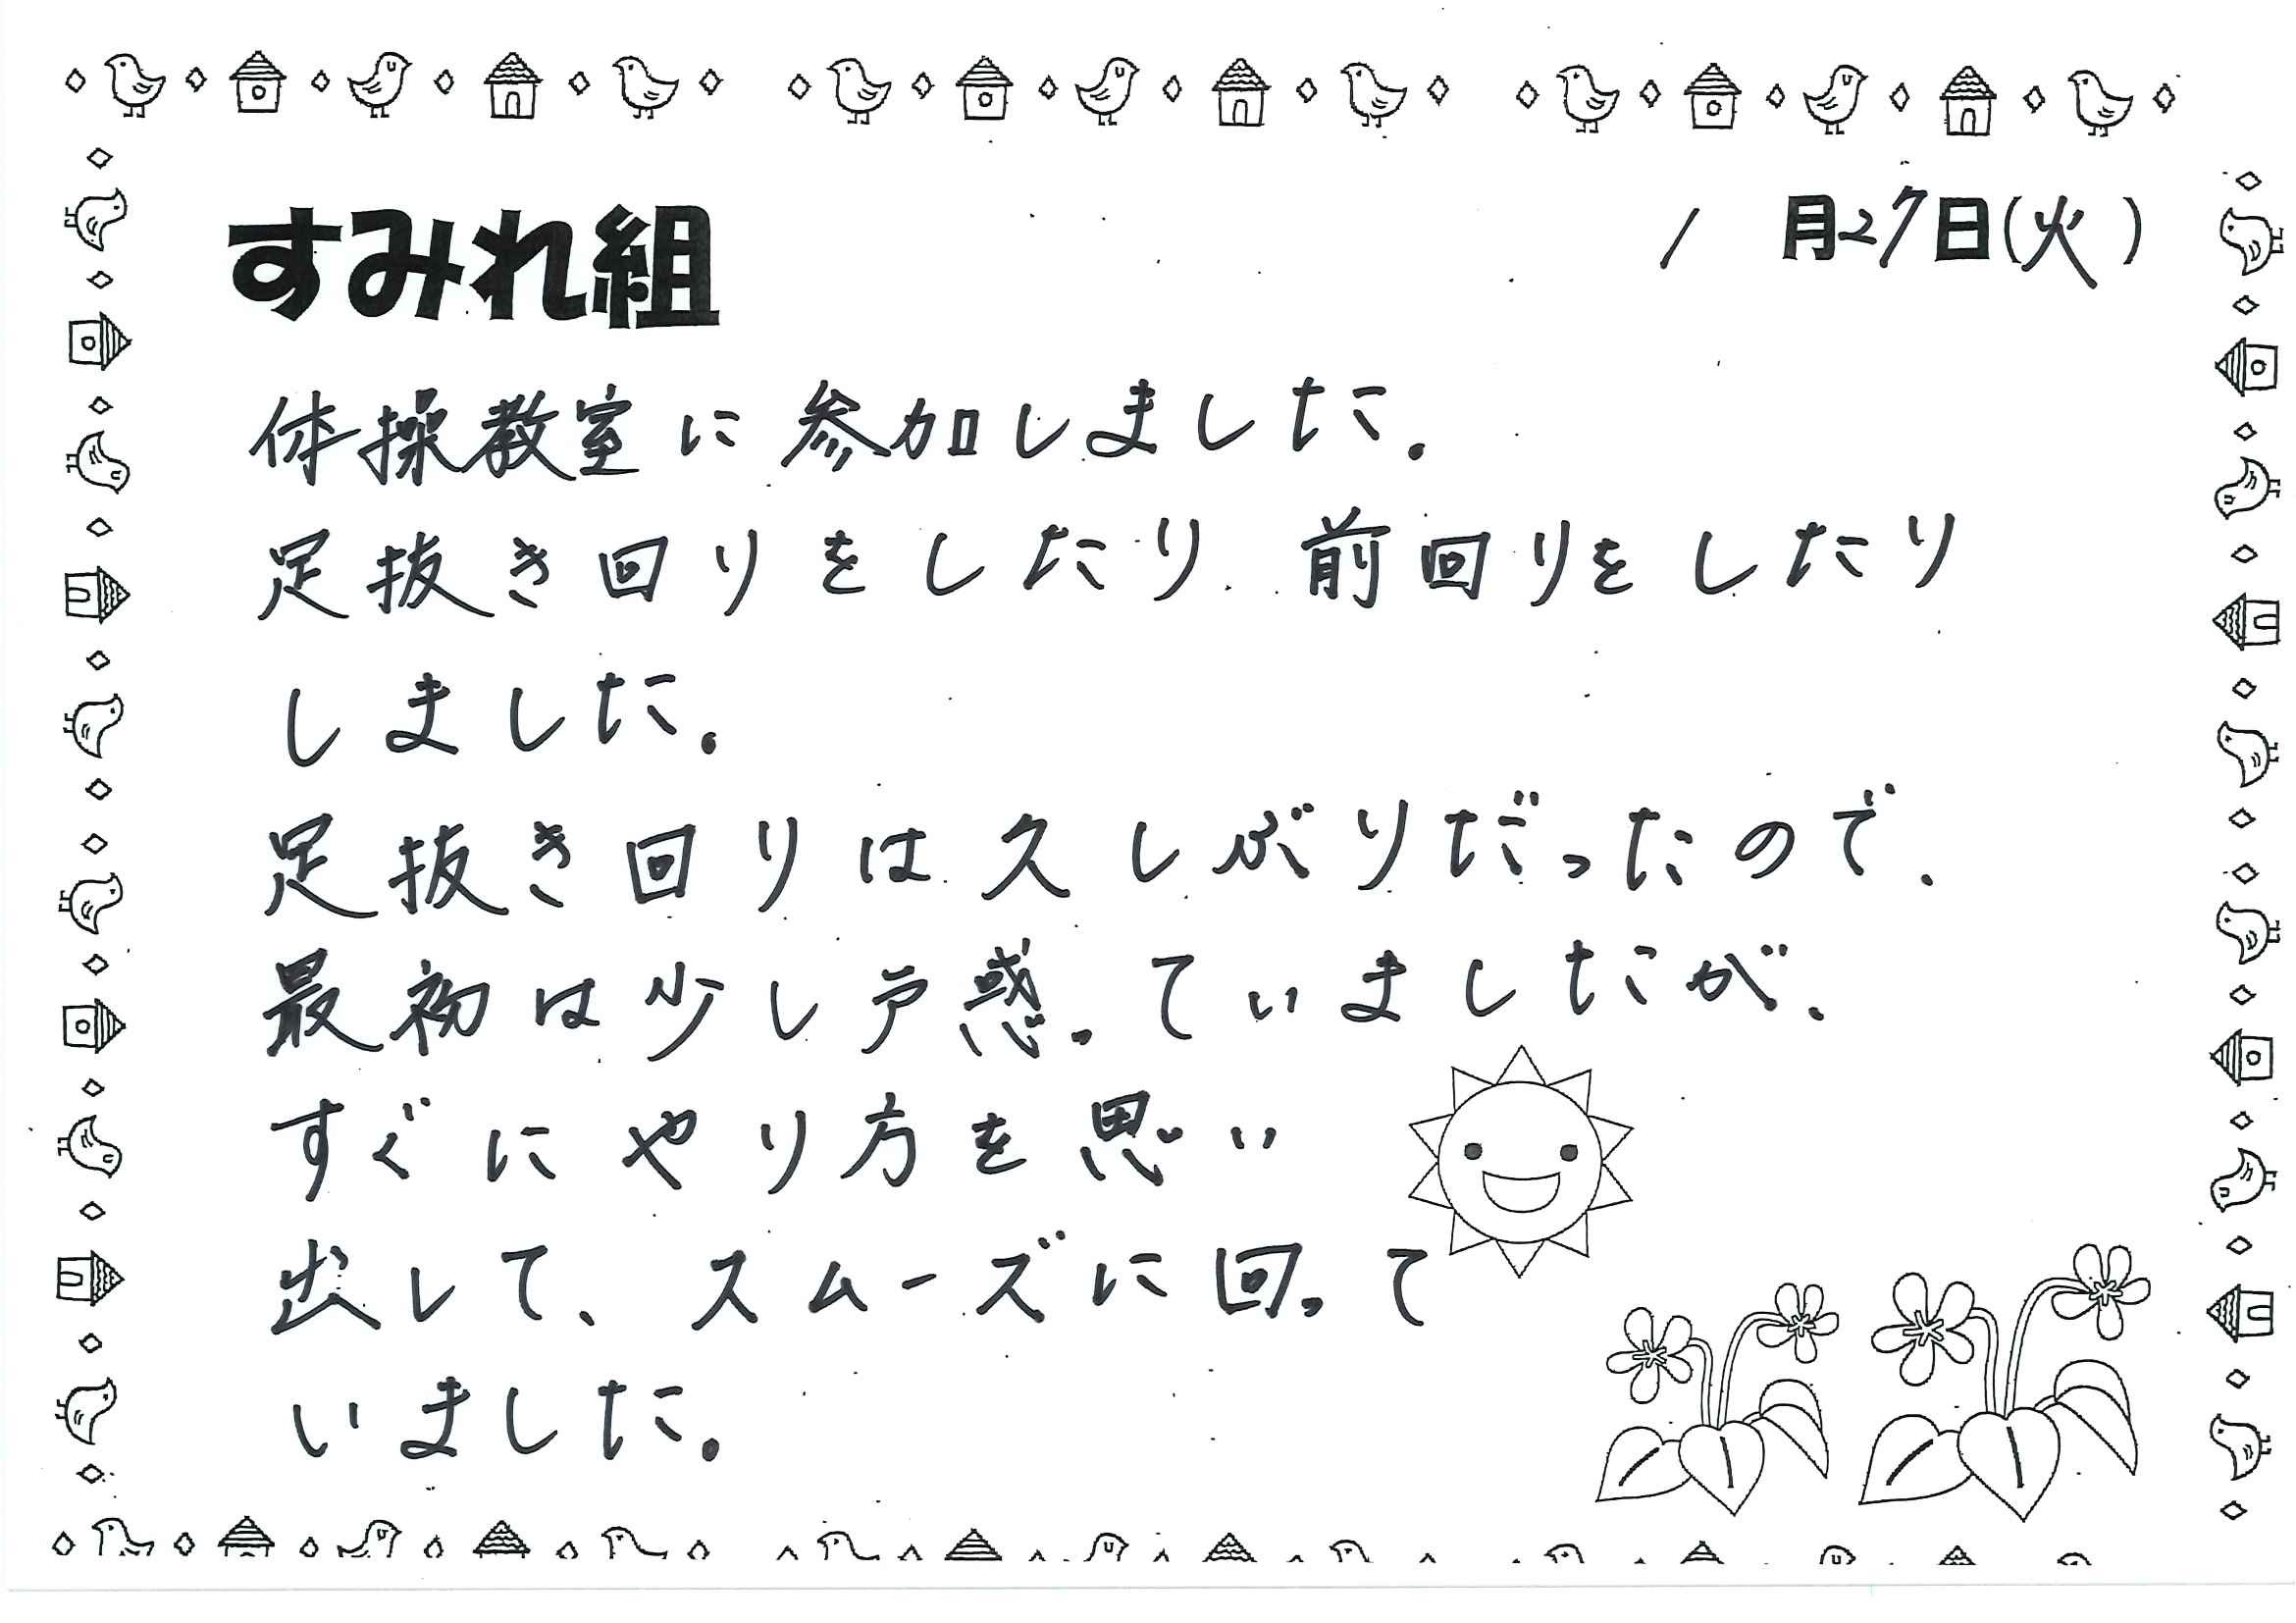 すみれ組
1月27日(火)
体操教室に参加しました。
足抜き回りをしたり、前回りをしたり
しました。
足抜き回りは久しぶりだったので、
最初は少し戸惑っていましたが、
すぐにやり方を思い
出して、スムーズに回って
いました。